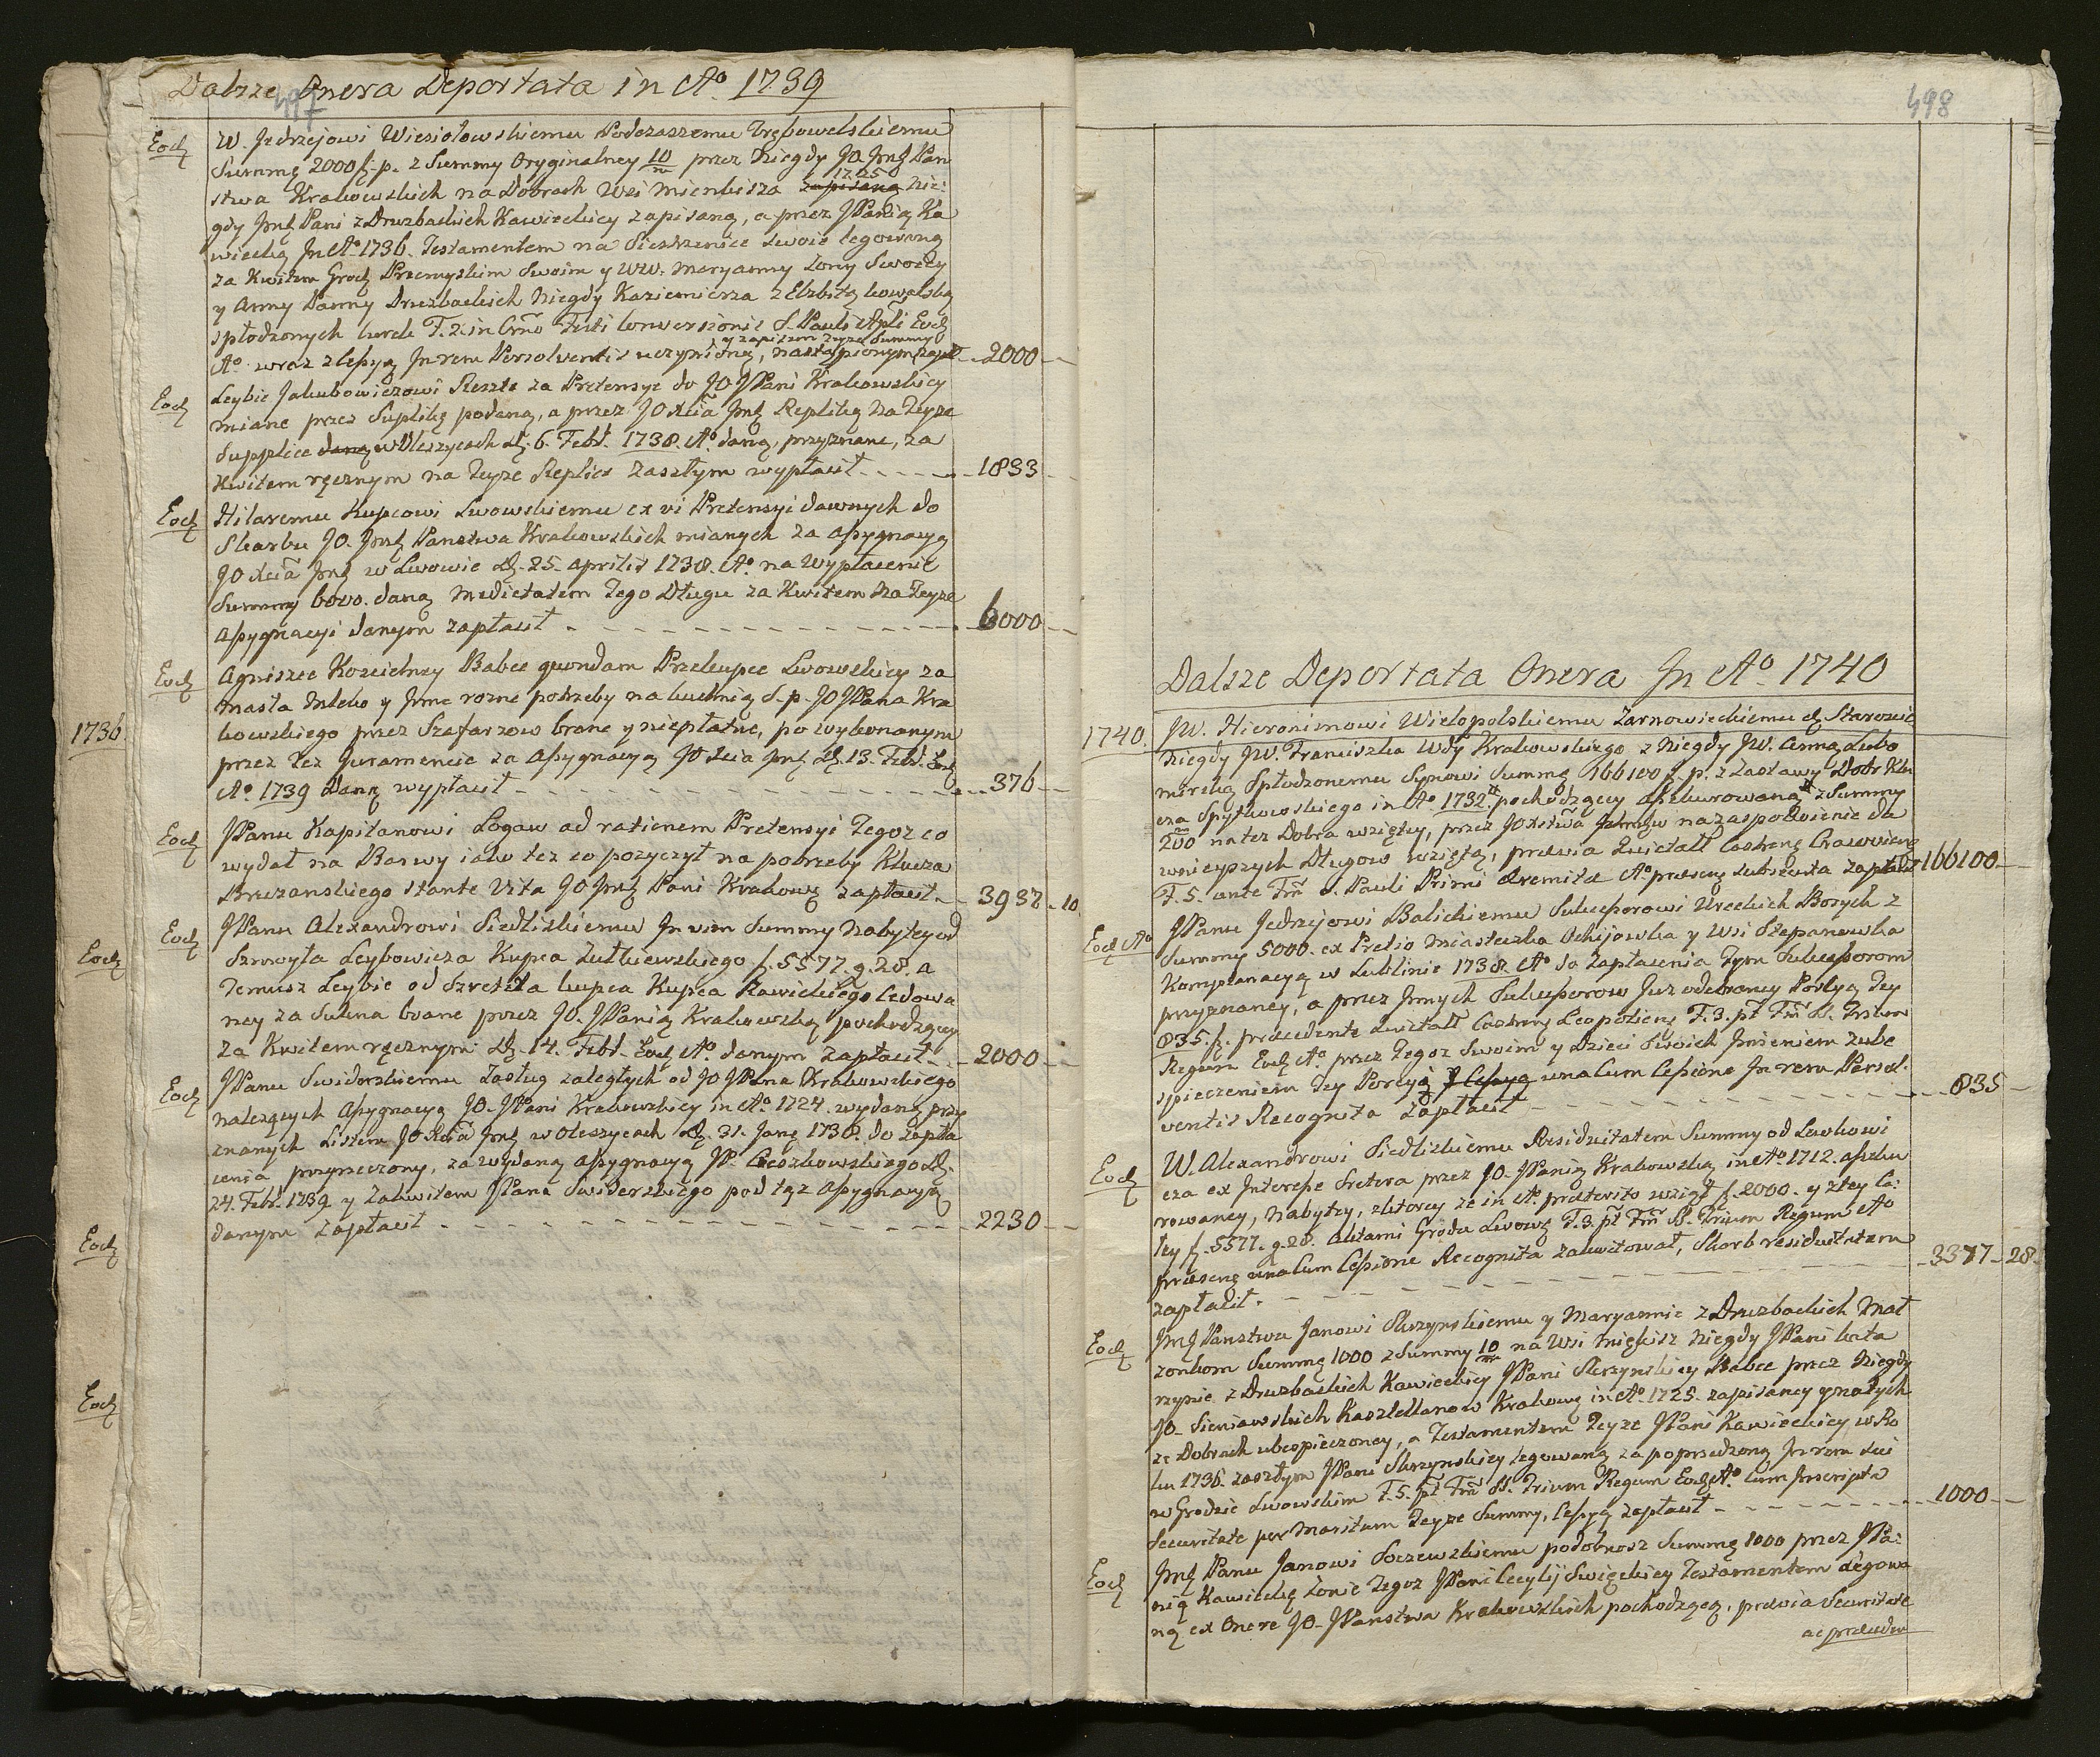 Dalsze Onera Deportata in Ao. 1739
497
Eod W. Jędrzejowi Wiesiołowskiemu Podczaszemu Trębowelskiemu
Summę 2000 f. p. z Summy Oryginalney 10/m przez Niegdy JO. Jmć Pań
stwa Krakowskich na Dobrach Wsi Mienkisza zapisaną 1725 Nie:
gdy Jmć Pani z Druzbackich Kawieckiey zapisaną, a przez JPanią Ka
wiecką Jn Ao. 1736. Testamentem na Siestrzenice swoie legowaną
za Kwitem Grod. Przemyskim Swoim y WW. Maryanny Zony Swoiey
y Anny Panny Druzbackich Niegdy Kazimierza z Elzbietą Kowalską
spłodzonych Corek F. 2. in Crno Festi Conversionis S. Pauli Apli Eod
y zapisem teyze Summy
Ao. wraz z Cessyą Jn rem Persolventis uczynioną, nastąpionym zapł. 2000
Eod Leybie Jakubowiczowi Resztę za Pretensye do JO JPani Krakowskiey
miane przez Suplikę podaną, a przez JO Xcia Jmć Replikę na Teyze
Supplice daną w Oleszycach d. 6. Febr. 1738. Ao. daną, przyznane, za
Kwitem ręcznym na Teyze Replice zaszłym wypłacił - - - - 1833
Eod Hilaremu Kupcowi Lwowskiemu ex vi Pretensyi dawnych do
Skarbu JO. Jmć Panstwa Krakowskich mianych za Assygnacyą
JO Xcia Jmć w Lwowie d. 25. Aprilis 1738. Ao. na wypłacenie
Summy 6000. daną Medietatem Tego Długu za Kwitem na Teyze
Assygnacyi danym zapłacił - - - - 6000
Eod Agniszce Koscielney Babce quondam Przekupce Lwowskiey za
Masła Mleko y Jnne rozne potrzeby na kuchnią S. p. JO JPana Kra
1736 kowskiego przez Szafarzow brane y niepłatne, po wykonanym
przez Tez Juramencie za Assygnacyą JO Xcia Jmć d. 13. Febr. Eod
Ao. 1739 Daną wypłacił - - - - 376
Eod JPanu Kapitanowi Logaw ad rationem Pretensyi Tegoz co
wydał na Barwy iako tez co pozyczył na potrzeby Klucza
Brzezanskiego stante Vita JO Jmć Pani Krakows. zapłacił - 3932 - 10
Eod JPanu Alexandrowi Siedliskiemu Jn vim Summy Nabytey od
Eod Szmoyła Leybowicza Kupca Zułkiewskiego f. 5377. g. 28. a
Temusz Leybie od Szretera kupca Kupca Rawickiego Cedowa
ney za Sukna brane przez JO. JPanią Krakowską pochodzącey
za Kwitem ręcznym d. 14. Febr. Eod Ao. danym zapłacił - 2000
Eod JPanu Swiderskiemu Zasług zaległych od JO JPana Krakowskiego
należących Assygnacyą JO. JPani Krakowskiey in Ao. 1724. wydaną przy
znanych Listem JO Xcia Jmć w Oleszycach d. 31. Jany 1738. do zapła
cenia przyrzeczony, za wydaną Assygnacyą JP. Cieszkowskiego d.
24. Febr. 1739 y zakwitem JPana Swiderskiego pod tąz Assygnacyą
Eod danym zapłacił - - - - 2230
Eod
498
Dalsze Deportata Onera Jn Ao. 1740
1740. JW. Hieronimowi Wielopolskiemu Zarnowieckiemu Staroscie
Niegdy JW. Franciszka Wdy Krakowskiego z Niegdy JW. Anną Lubo
mirską Spłodzonemu Synowi Summę 166100 f. p. z Zastawy Dobr Klu
cza Spytkowskiego in Ao. 1732 pochodzącey Assekurowaną z Summy
200 na tez Dobra wziętey, przez JO Xstwa Jchmciow na zaspokoienie da
wnieyszych Długow wziętą, praevia Quietatt. Castrens. Cracoviens.
F. 5. ante Fm S. Pauli Primi Eremitae Ao. praesens. subsecuta zapłacił 166100
Eod Ao JPanu Jędrzejowi Balickiemu Sukcessorowi Ureckich Bosych z
Summy 5000. ex Pretio Miasteczka Ochijowka y Wsi Stepanowka
Komplanacyą w Lublinie 1738. Ao do Zapłacenia Tym Sukcessorom
przyznaney, a przez Jnnych Sukcessorow Juz odebraney Portyą Tey
835. f. praecedente Quietatt. Castrens. Leopoliens. F. 3. pt. Fm SS. Trium
Regum Eod Ao. przez Tegoz Swoim y Dzieci Swoich Jmieniem zube
spieczeniem Tey Portyą y Cessyą una cum Cessione Jn rem Persol.
ventis Recognita zapłacił - - - - 835
Eod W. Alexandrowi Siedliskiemu Residuitatem Summy od Lewkowi
cza ex Jnteresse Sretera przez JO. JPanią Krakowską in Ao. 1712. asseku
rowaney, nabytey, z ktorey ze in Ao. praeterito wziął f. 2000. y z tey Ca:
łey f. 5377. g. 28. Aktami Grodu Lwows. F. 3. pt. Fm SS. Trium Regum Ao
praesens. una cum Cessione Recognita zakwitował, Skarb residuitatem
zapłacił. - - - - 3377 - 28
Eod Jmć Panstwu Janowi Skrzynskiemu y Maryannie z Druzbackich Mał
zonkom Summę 1000 z Summy 10/m na Wsi Miękisz Niegdy JPani Kata
rzynie z Druzbackich Kawieckiey JPani Skrzynskiey Babce przez Niegdy
JO. Sieniawskich Kasztellanow Krakows. in Ao. 1725. zapisaney y na tych
ze Dobrach ubespieczoney, a Testamentem Teyze JPani Kawieckiey, w Ro
ku 1736. zaszłym JPani Skrzynskiey legowaną za poprzedzoną Jn rem Xcia
w Grodzie Lwowskim F. 5. pt. Fm SS. Trium Regum Eod Ao. cum Jnscripta
Securitate per Maritum Teyze Summy, Cessyą zapłacił - - - - 1000
Eod Jmć Panu Janowi Soczewskiemu podobnosz Summę 1000 przez JPa:
nią Kawiecką Zonie Tegoz JPani Cecylij Swięckiey Testamentem legowa
ną ex Onere JO. JPanstwa Krakowskich pochodzącą, praevia Securitate
ac praeceden